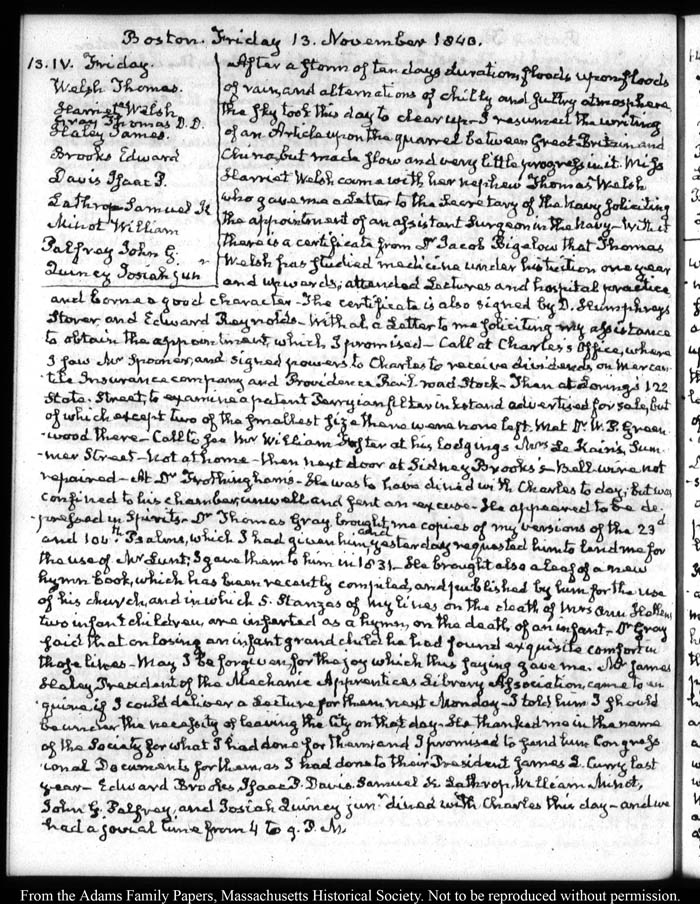 Boston. Friday 13. November 1840.
13. IV. Friday.
Welsh Thomas.
Harriet Welsh
Gray Thomas D.D.
Haley James.
Brooks Edward
Davis Isaac P.
Lathrop Samuel K
Minot William
Palfrey John G.
Quincy Josiah jun.r
After a storm of ten days duration, floods upon floods
of rain, and alternations of chilly and sultry atmosphere
the sky took this day to clear up. I resumed the writing
of an Article upon the quarrel between Great-Britain and
China, but made slow and very little progress in it. Miss
Harriet Welsh came with her nephew Thomas Welsh
who gave me a Letter to the Secretary of the Navy soliciting
the appointment of an assistant Surgeon in the Navy. With it
there is a certificate from Dr. Jacob Bigelow that Thomas
Welsh has studied medicine under his tuition one year
and upwards; attended Lectures and hospital practice
and borne a good character. The certificate is also signed by D. Humphreys
Storer, and Edward Reynolds. With al, a Letter to me soliciting my assistance
to obtain the appointment, which I promised. Call at Charles's Office, where
I saw Mr Spooner, and signed powers to Charles to receive dividends, on Mercan-
tile Insurance company and Providence Rail-road Stock. Then at Loring's 122
State Street, to examine a patent Perryian filter inkstand advertised for sale, but
of which except two of the smallest size there were none left. Met Dr. W. P. Green
wood there. Call to see Mr William Foster at his lodgings Mrs Le Kain's, Sum-
mer Street. Not at home. Then next door at Sidney Brooks's. Bell-wire not
repaired. At Dr Frothingham's. He was to have dined with Charles to day; but was
confined to his chamber, unwell and sent an excuse. He appeared to be de-
pressed in Spirits. Dr Thomas Gray brought me copies of my versions of the 23d
and 104th Psalms, which I had given him, and yesterday requested him to lend me for
the use of Mr Lunt; I gave them to him in 1831. He brought also a leaf of a new
hymn book, which has been recently compiled, and published by him for the use
of his church, and in which 5. Stanzas of my lines on the death of Mrs Ann Hellen's
two infant children, are inserted as a hymn, on the death of an infant. Dr Gray
said that on losing an infant grandchild he had found exquisite comfort in
those lines. May I be forgiven, for the joy which this saying gave me. Mr James
Haley President of the Mechanic Apprentices Library Association, came to en
quire if I could deliver a Lecture for them next Monday. I told him I should
be under the necessity of leaving the City on that day. He thanked me in the name
of the Society for what I had done for them; and I promised to send him Congress
ional Documents for them, as I had done to their President James L. Curry last
year. Edward Brooks, Isaac P. Davis, Samuel K. Lathrop, William Minot,
John G. Palfrey, and Josiah Quincy jun.r dined with Charles this day. and we
had a jovial time from 4 to 9. P.M.
From the Adams Family Papers, Massachusetts Historical Society. Not to be reproduced without permission.